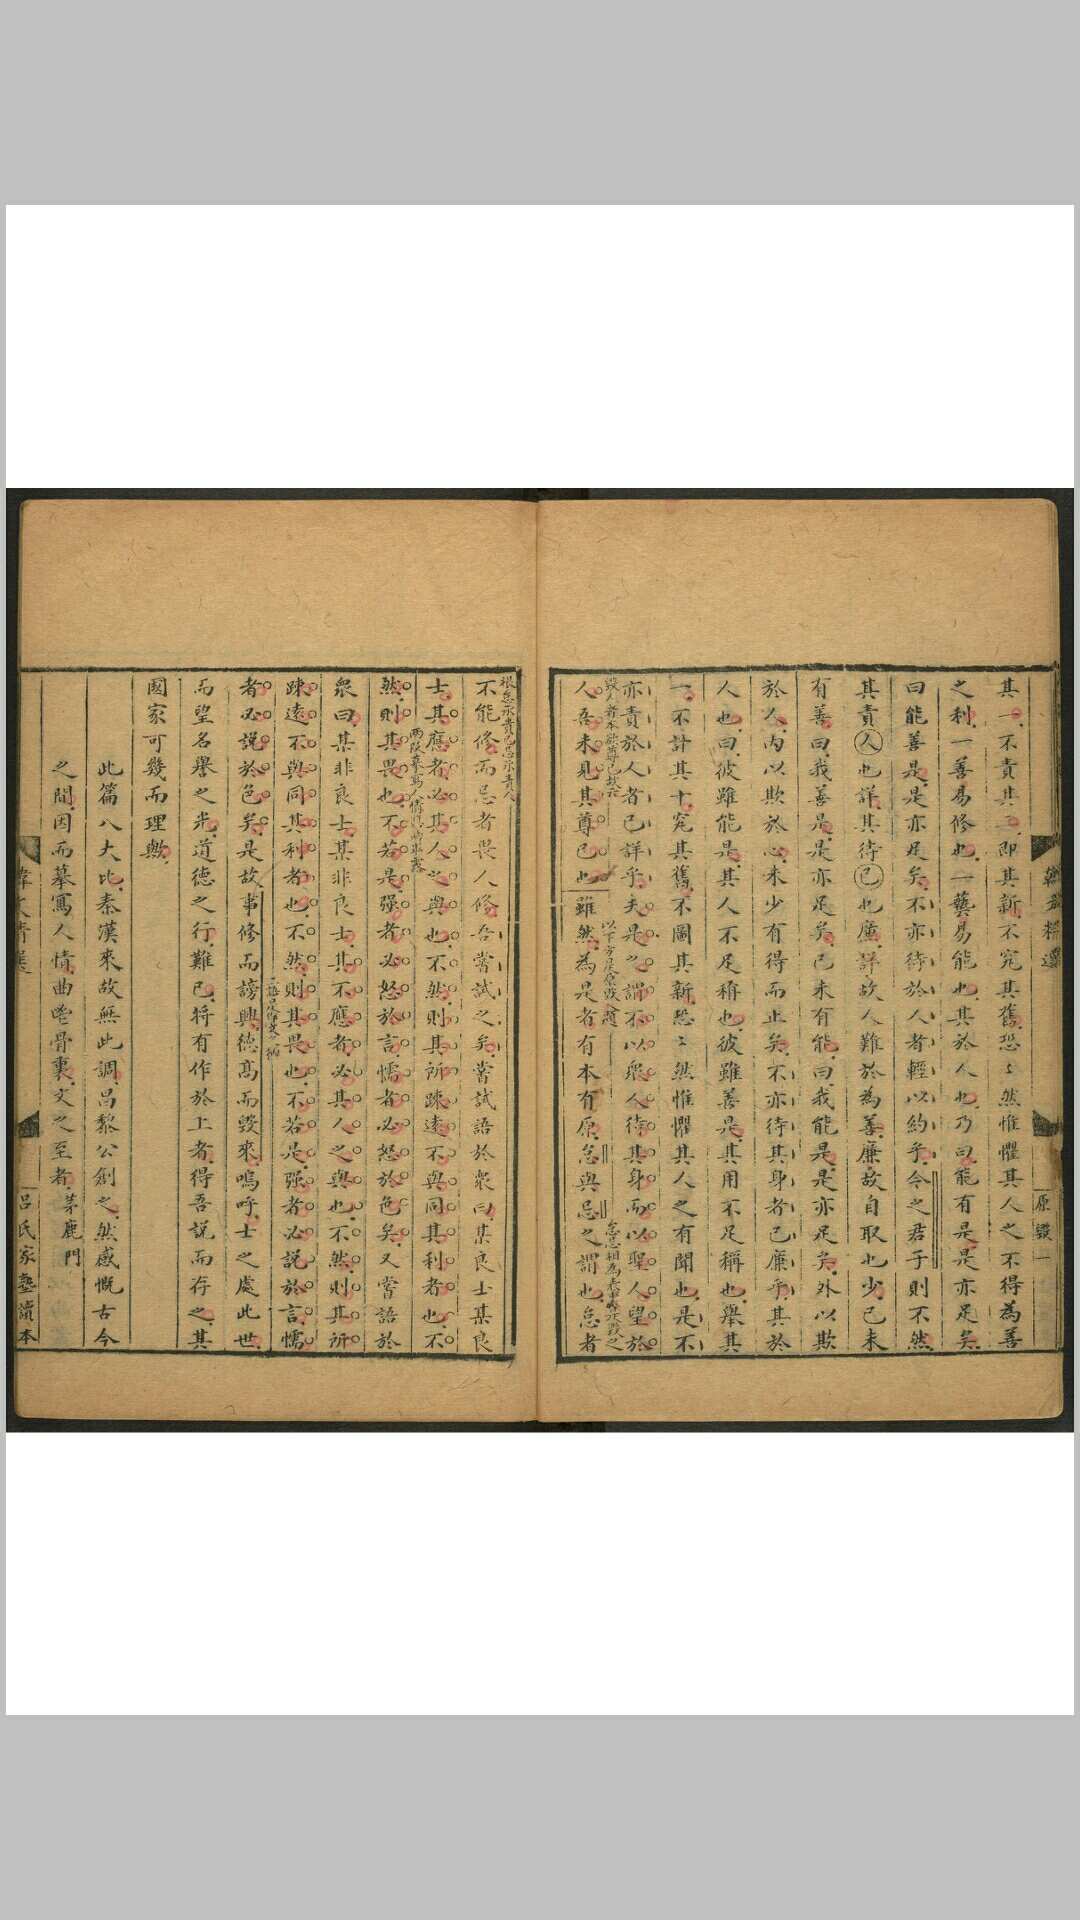 原毀一
其一不責其二即其新不究其舊恐〻然惟懼其人之不得為善
之利一善易修也一藝易能也其於人也乃曰能有是是亦足矣
曰能善是是亦足矣不亦待於人者輕以約乎今之君子則不然
其責人也詳其待己也廉詳故人難於為善廉故自取也少己未
有善曰我善是是亦足矣己未有能曰我能是是亦足矣外以欺
於人內以欺於心未少有得而止矣不亦待其身者已廉乎其於
人也曰彼雖能是其人不足稱也彼雖善是其用不足稱也舉其
一不計其十究其舊不圖其新恐〻然惟懼其人之有聞也是不
亦責於人者已詳乎夫是之謂不以眾人待其身而以聖人望於
毀人者本欲尊己故於
以下方是原毀
人吾未見其尊己也雖然為是者有本有原怠與忌之謂也怠者
不能修而忌者畏人修吾嘗試之矣嘗試語於眾曰某良士某良
士其應者必其人之與也不然則其所疎遠不與同其利者也不
然則其畏也不若是强者必怒於言懦者必怒於色矣又嘗語於
眾曰某非良士某非良士其不應者必其人之與也不然則其所
疎遠不與同其利者也不然則其畏也不若是强者必說於言懦
者必說於色矣是故事修而謗興德高而毀來嗚呼士之處此世
而望名譽之光道德之行難已將有作於上者得吾說而存之其
國家可幾而理歟
此篇八大比秦漢來故無此調昌黎公創之然感慨古今
之間因而摹寫人情曲鬯骨裏文之至者茅鹿門
呂氏家塾讀本